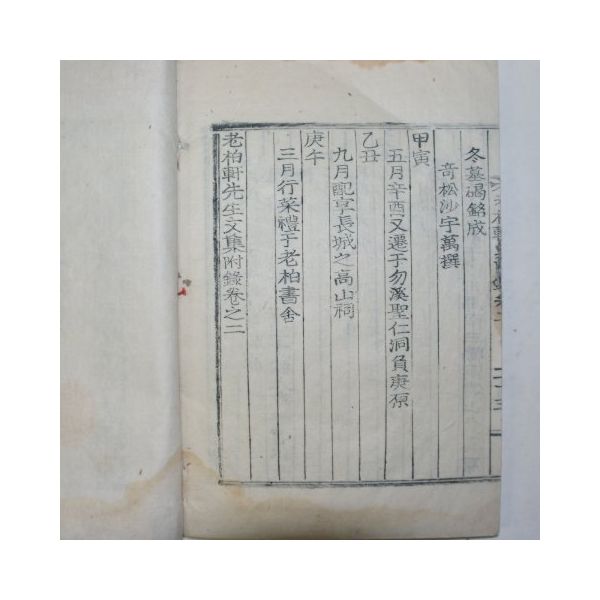 冬墓碣銘成
奇松沙宇萬撰
甲寅
五月辛酉又遷于勿溪聖仁洞負庚原
乙丑
九月配享長城之高山祠
庚午
三月行菜禮于老柏書舍
老柏軒先生文集附錄卷之二